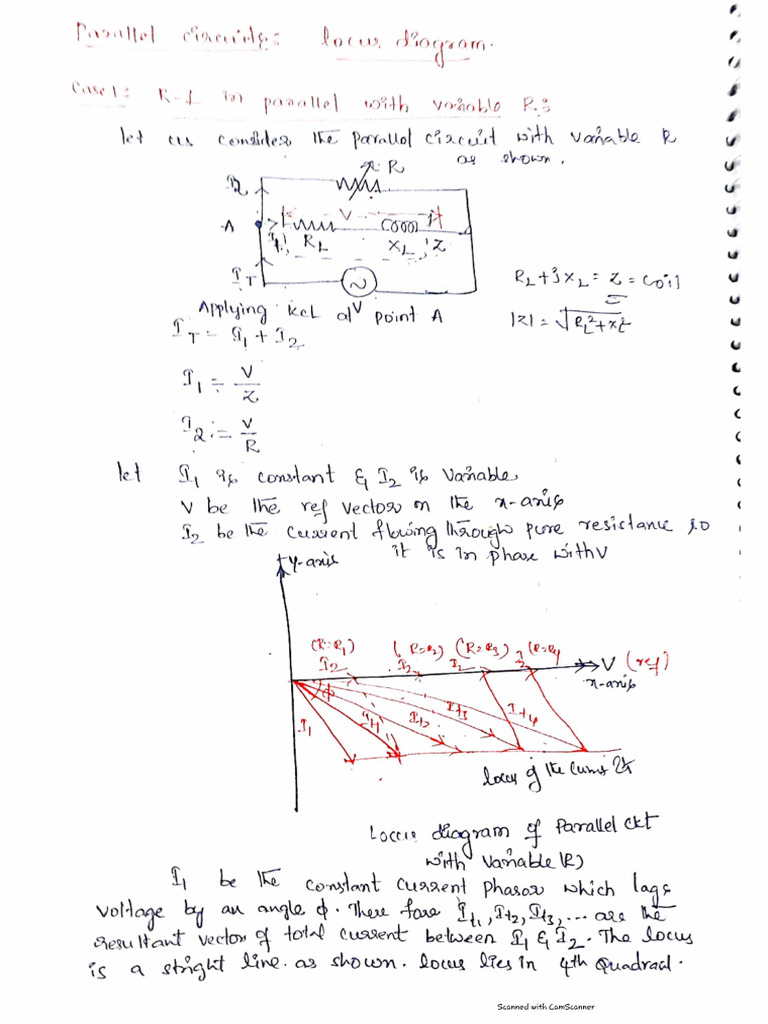 Parallel circuits: locus diagram.
Case 1: R-L in parallel with variable R:
let us consider the parallel circuit with variable R
as shown.
R
I2
V
A
I1 RL XL, Z
IT
V
RL + jXL = Z = Coil
|Z| = √RL²+XL²
Applying KCL at point A
IT = I1 + I2
I1 = V/Z
I2 = V/R
let I1 is constant & I2 is variable
V be the ref vector on the x-axis
I2 be the current flowing through pure resistance so
it is in phase with V
+y-axis
(R=R1) (R=R2) (R=R3) (R=R4
I2 I2 I2 I2 V (ref)
x-axis
ϕ
I1 It1 It2 It3 It4
locus of the
Locus diagram of Parallel Ckt
with Variable (R)
I1 be the constant current phasor which lags
voltage by an angle ϕ. There fore It1, It2, It3, ... are the
resultant vector of total current between I1 & I2. The locus
is a stright line. as shown. locus lies in 4th Quadrad.
Scanned with CamScanner